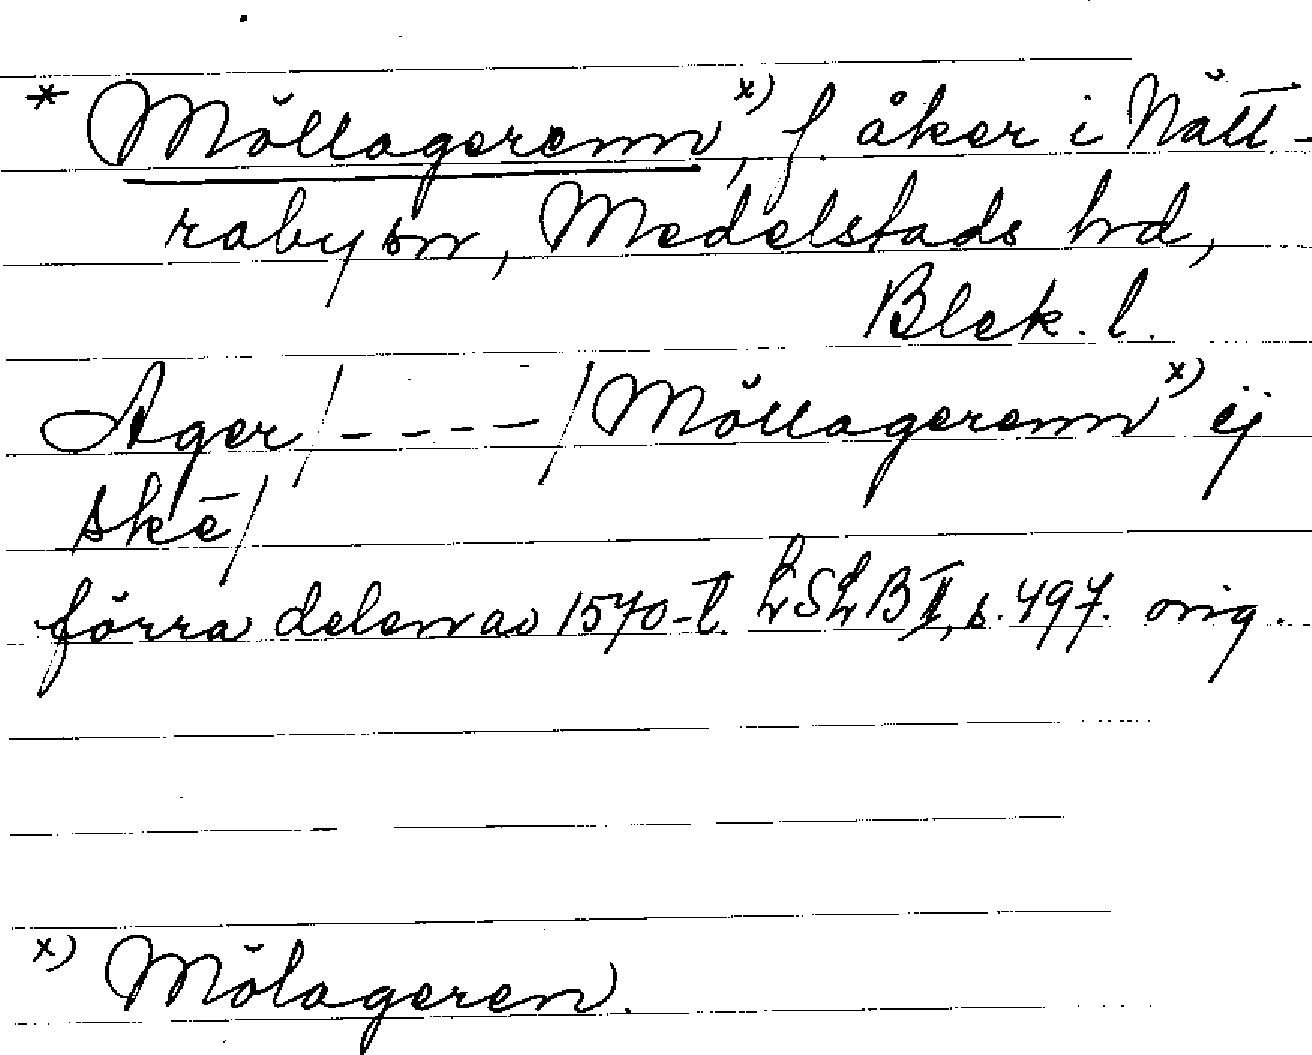 * Möllagerenn x), f åker i Nätt-
raby sn, Medelstads hrd,
Blek. l.
Ager/----/Möllagerenn x) ej
ske/
förra delen av 1570-t. LSLB II, s. 497. orig.
x) Mölageren.